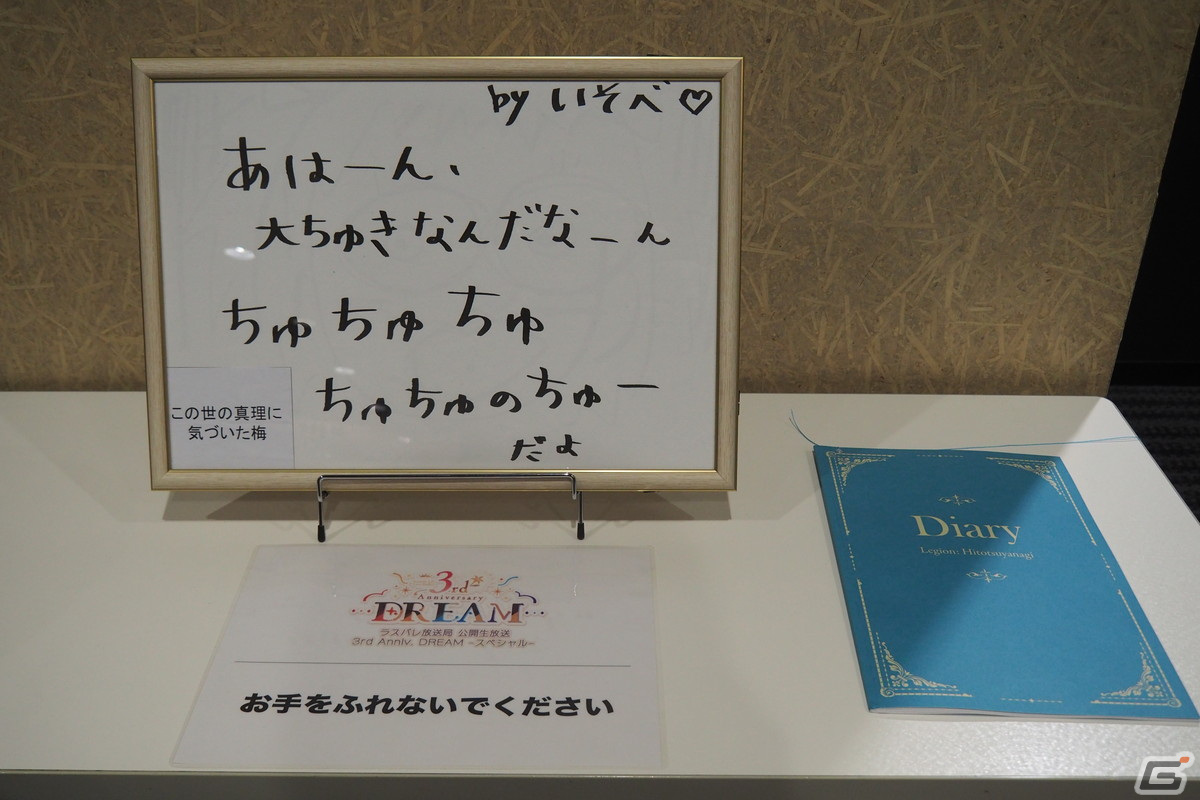 by いそべ♡
あはーん、
大ちゅきなんだなーん
ちゅ ちゅ ちゅ
ちゅちゅのちゅー
だよ
この世の真理に
気づいた梅
3rd
Anniversary
DREAM
ラスバレ放送局 公開生放送
3rd Anniv. DREAM -スペシャル-
お手をふれないでください
Diary
Legion: Hitotsuyanagi
G